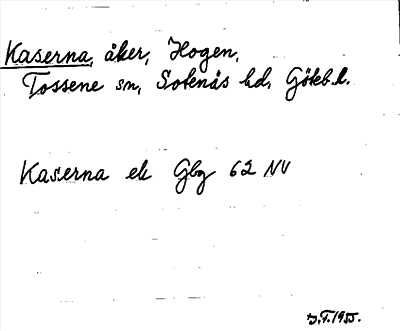 Kaserna, åker, Hogen,
Tossene sn, Sotenäs hd, Göteb.l.
Kaserna ek Gbg 62 NV
J.F. 1955.